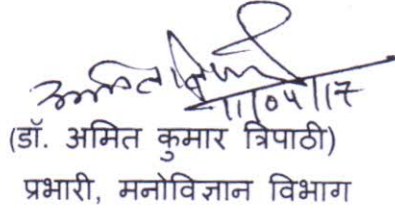 11/04/17
(डॉ. अमित कुमार त्रिपाठी)
प्रभारी, मनोविज्ञान विभाग